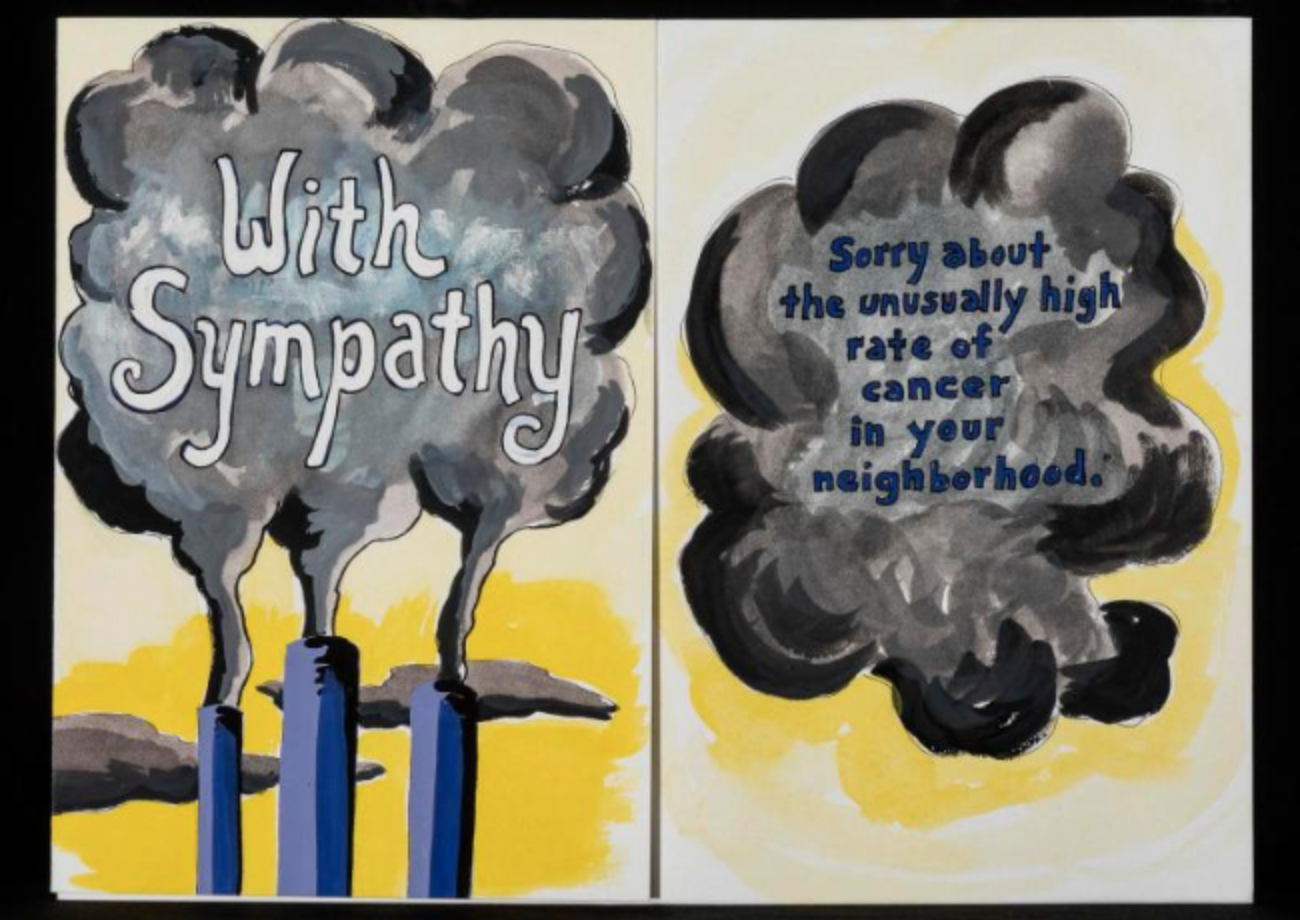 With
Sympathy
Sorry about
the unusually high
rate of
cancer
in your
neighborhood.